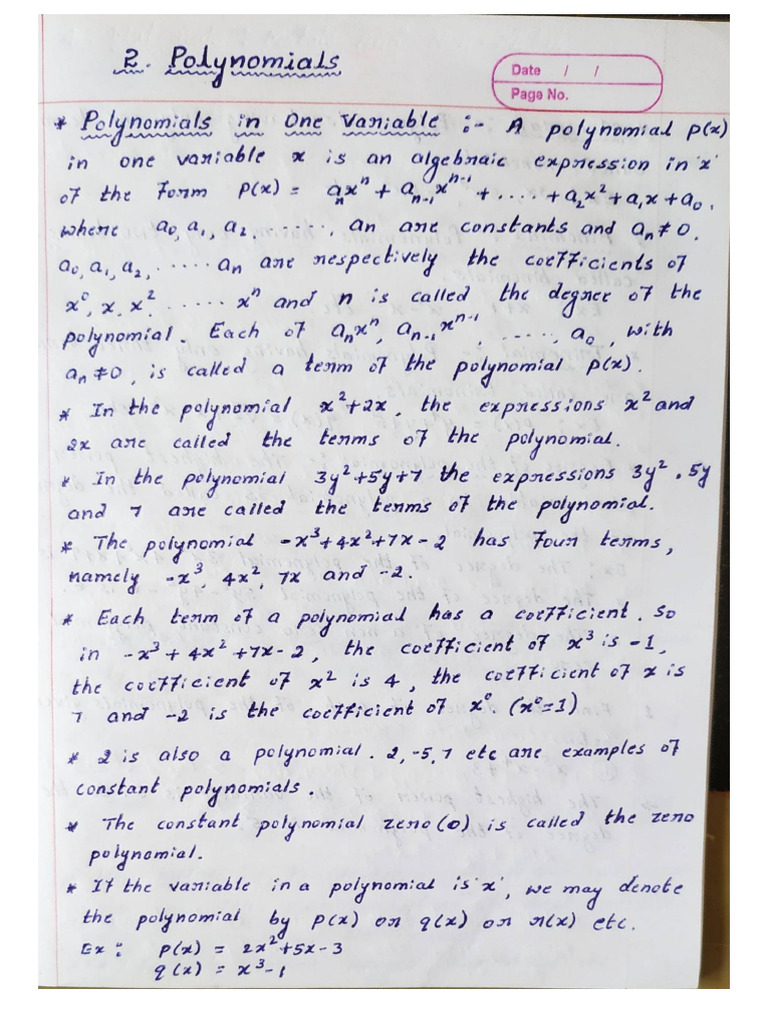 2. Polynomials
Date / /
Page No.
* Polynomials in One Variable :- A polynomial p(x)
in one variable x is an algebraic expression in 'x'
of the form p(x) = aₙxⁿ + aₙ₋₁xⁿ⁻¹ + .... + a₂x² + a₁x + a₀.
where a₀, a₁, a₂, ......, an are constants and aₙ ≠ 0.
a₀, a₁, a₂, ..... an are respectively the coefficients of
x⁰, x, x² ...... xⁿ and n is called the degree of the
polynomial. Each of aₙxⁿ, aₙ₋₁xⁿ⁻¹, ....., a₀, with
aₙ ≠ 0, is called a term of the polynomial p(x).
* In the polynomial x²+2x, the expressions x² and
2x are called the terms of the polynomial.
* In the polynomial 3y²+5y+7 the expressions 3y², 5y
and 7 are called the terms of the polynomial.
* The polynomial -x³+4x²+7x-2 has four terms,
namely -x³, 4x², 7x and -2.
* Each term of a polynomial has a coefficient. So
in -x³+4x²+7x-2, the coefficient of x³ is -1,
the coefficient of x² is 4, the coefficient of x is
7 and -2 is the coefficient of x⁰. (x⁰=1)
* 2 is also a polynomial. 2,-5,7 etc are examples of
constant polynomials.
* The constant polynomial zero(0) is called the zero
polynomial.
* If the variable in a polynomial is 'x', we may denote
the polynomial by p(x) or q(x) or r(x) etc.
Ex: p(x) = 2x²+5x-3
q(x) = x³-1